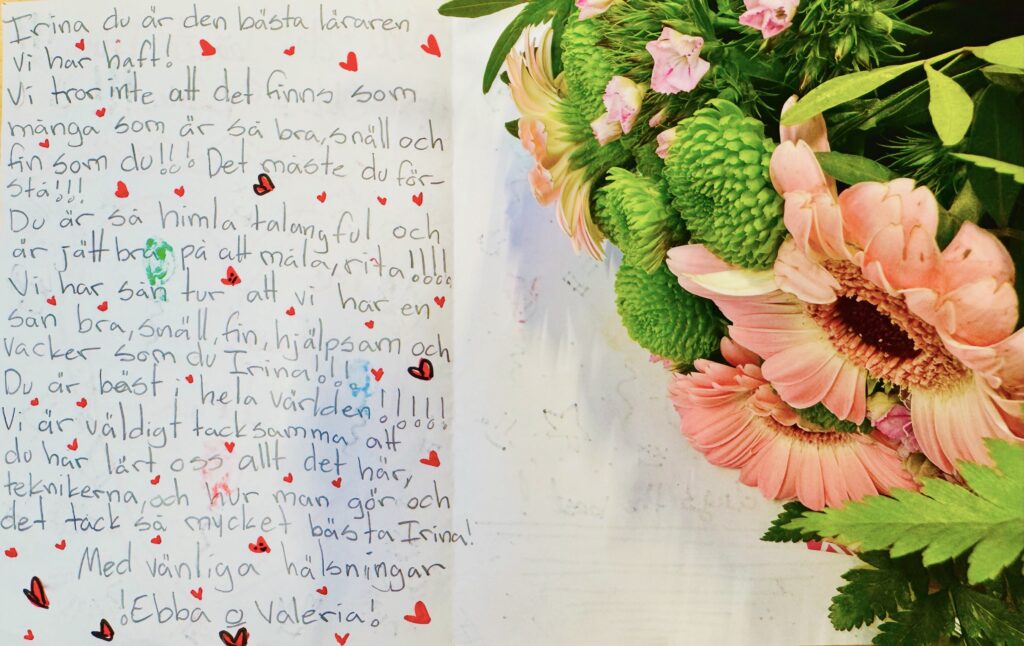 Irina du är den bästa läraren
vi har haft!
Vi tror inte att det finns som
många som är så bra, snäll och
fin som du!!! Det måste du för-
stå!!!
Du är så himla talangful och
är jätt bra på att måla, rita!!!!
Vi har sån tur att vi har en
sån bra, snäll, fin, hjälpsam och
vacker som du Irina!!!
Du är bäst i hela världen!!!!!
Vi är väldigt tacksamma att
du har lärt oss allt det här,
teknikerna, och hur man gör och
det tack så mycket bästa Irina!
Med vänliga hälsningar
!Ebba o Valeria!